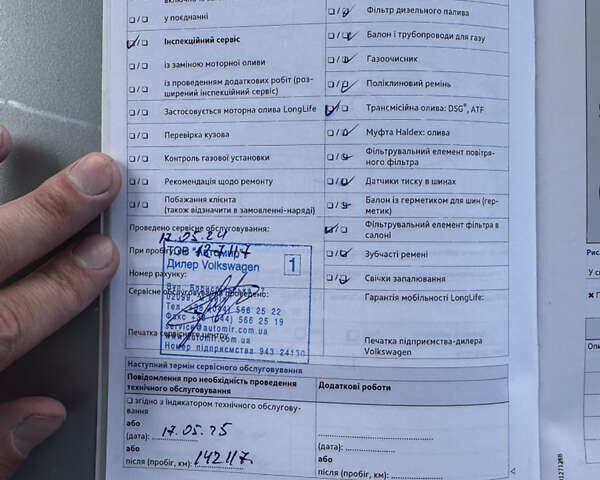 у поєднанні
Інспекційний сервіс
із заміною моторної оливи
із проведенням додаткових робіт (роз-
ширений інспекційний сервіс)
Застосовується моторна олива LongLife
Перевірка кузова
Контроль газової установки
Рекомендація щодо ремонту
Побажання клієнта
(також відзначити в замовленні-наряді)
Проведено сервісне обслуговування:
17.05.24
При
127117
Номер рахунку:
Сервісне обслуговування проведено:
Печатка сервісного центру
ТОВ "Автомир"
Дилер Volkswagen
1
02099,
Тел. (044) 566 25 22
Факс +38 (044) 566 25 19
service@automir.com.ua
www.automir.com.ua
Номер підприємства 943 24130
Фільтр дизельного палива
Балон і трубопроводи для газу
Газоочисник
Поліклиновий ремінь
Трансмісійна олива: DSG®, ATF
Муфта Haldex: олива
Фільтрувальний елемент повітря-
ного фільтра
Датчики тиску в шинах
Балон із герметиком для шин (гер-
метик)
Фільтрувальний елемент фільтра в
салоні
Зубчасті ремені
Свічки запалювання
Гарантія мобільності LongLife:
Печатка підприємства-дилера
Volkswagen
Наступний термін сервісного обслуговування
Повідомлення про необхідність проведення
технічного обслуговування
згідно з індикатором технічного обслугову-
вання
або
(дата): 17.05.25
або
після (пробіг, км): 142117
Додаткові роботи
(дата):
після (пробіг, км):